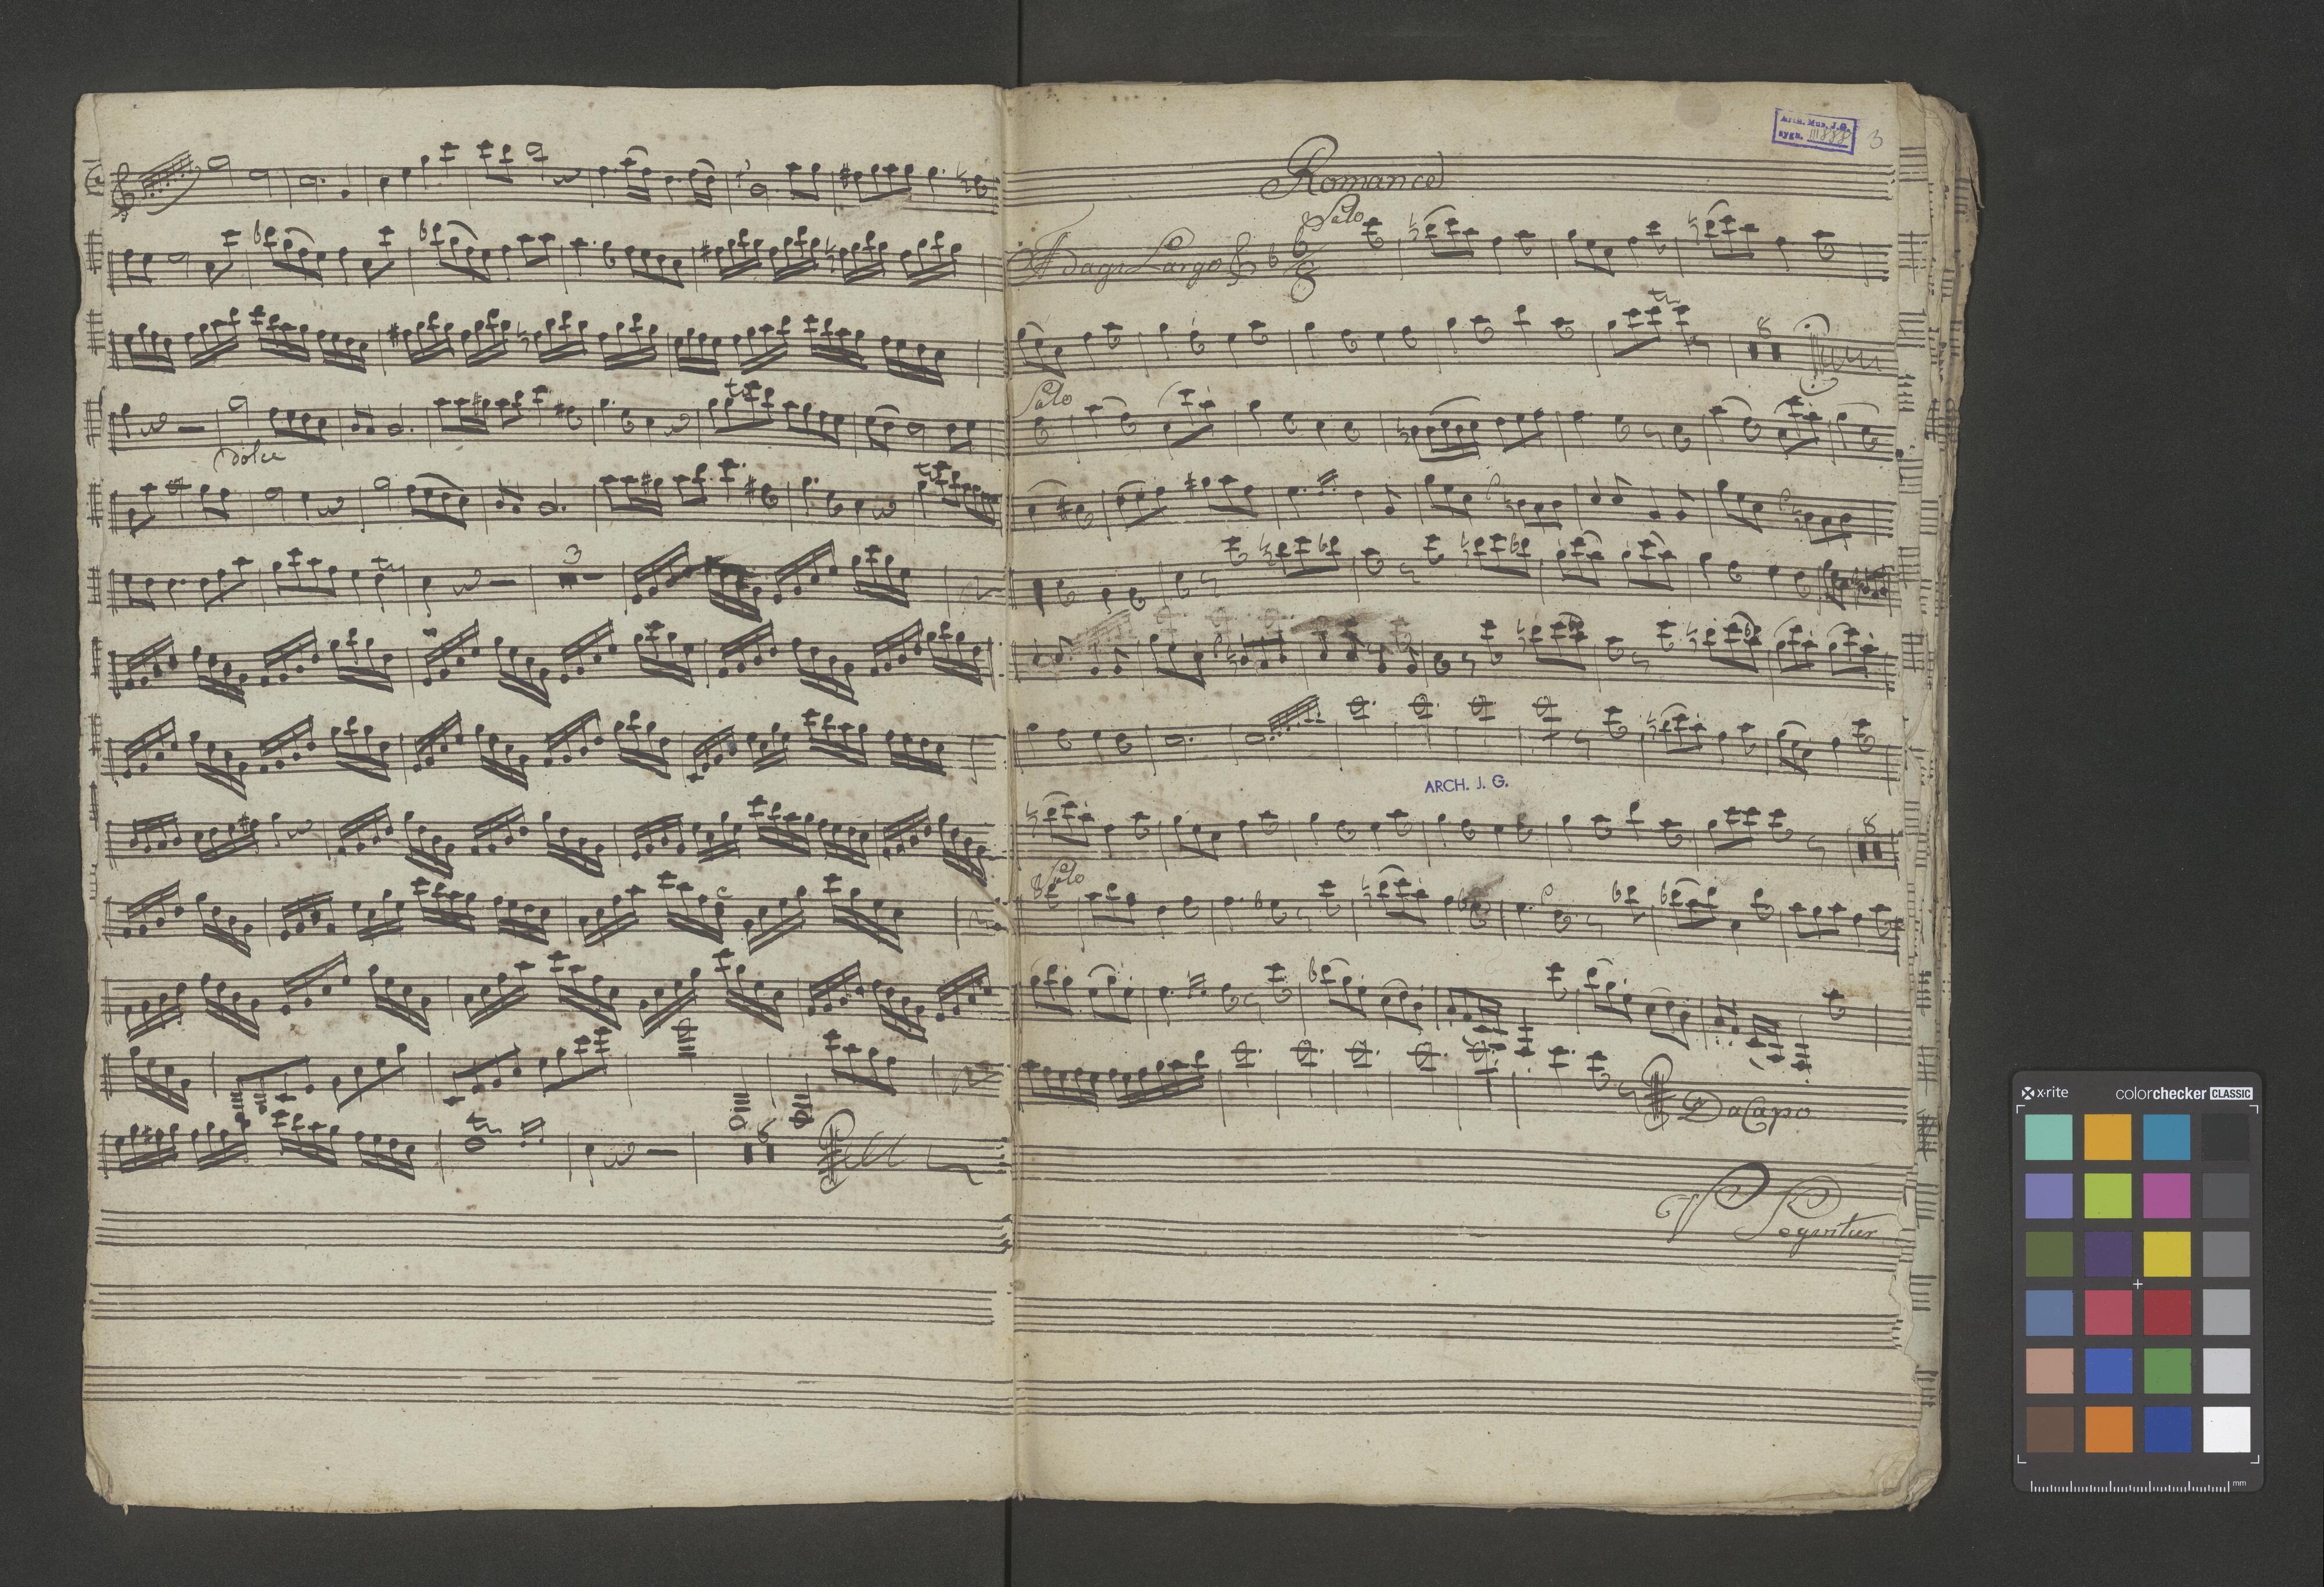 dolce
3
6
Arch. Mus. J.G.
sygn. III 888
3
Romance
Solo
Adagi Largo
6
8
8
Solo
ARCH. J. G.
8
Solo
Da Capo
V Sequitur
x-rite
colorchecker CLASSIC
mm